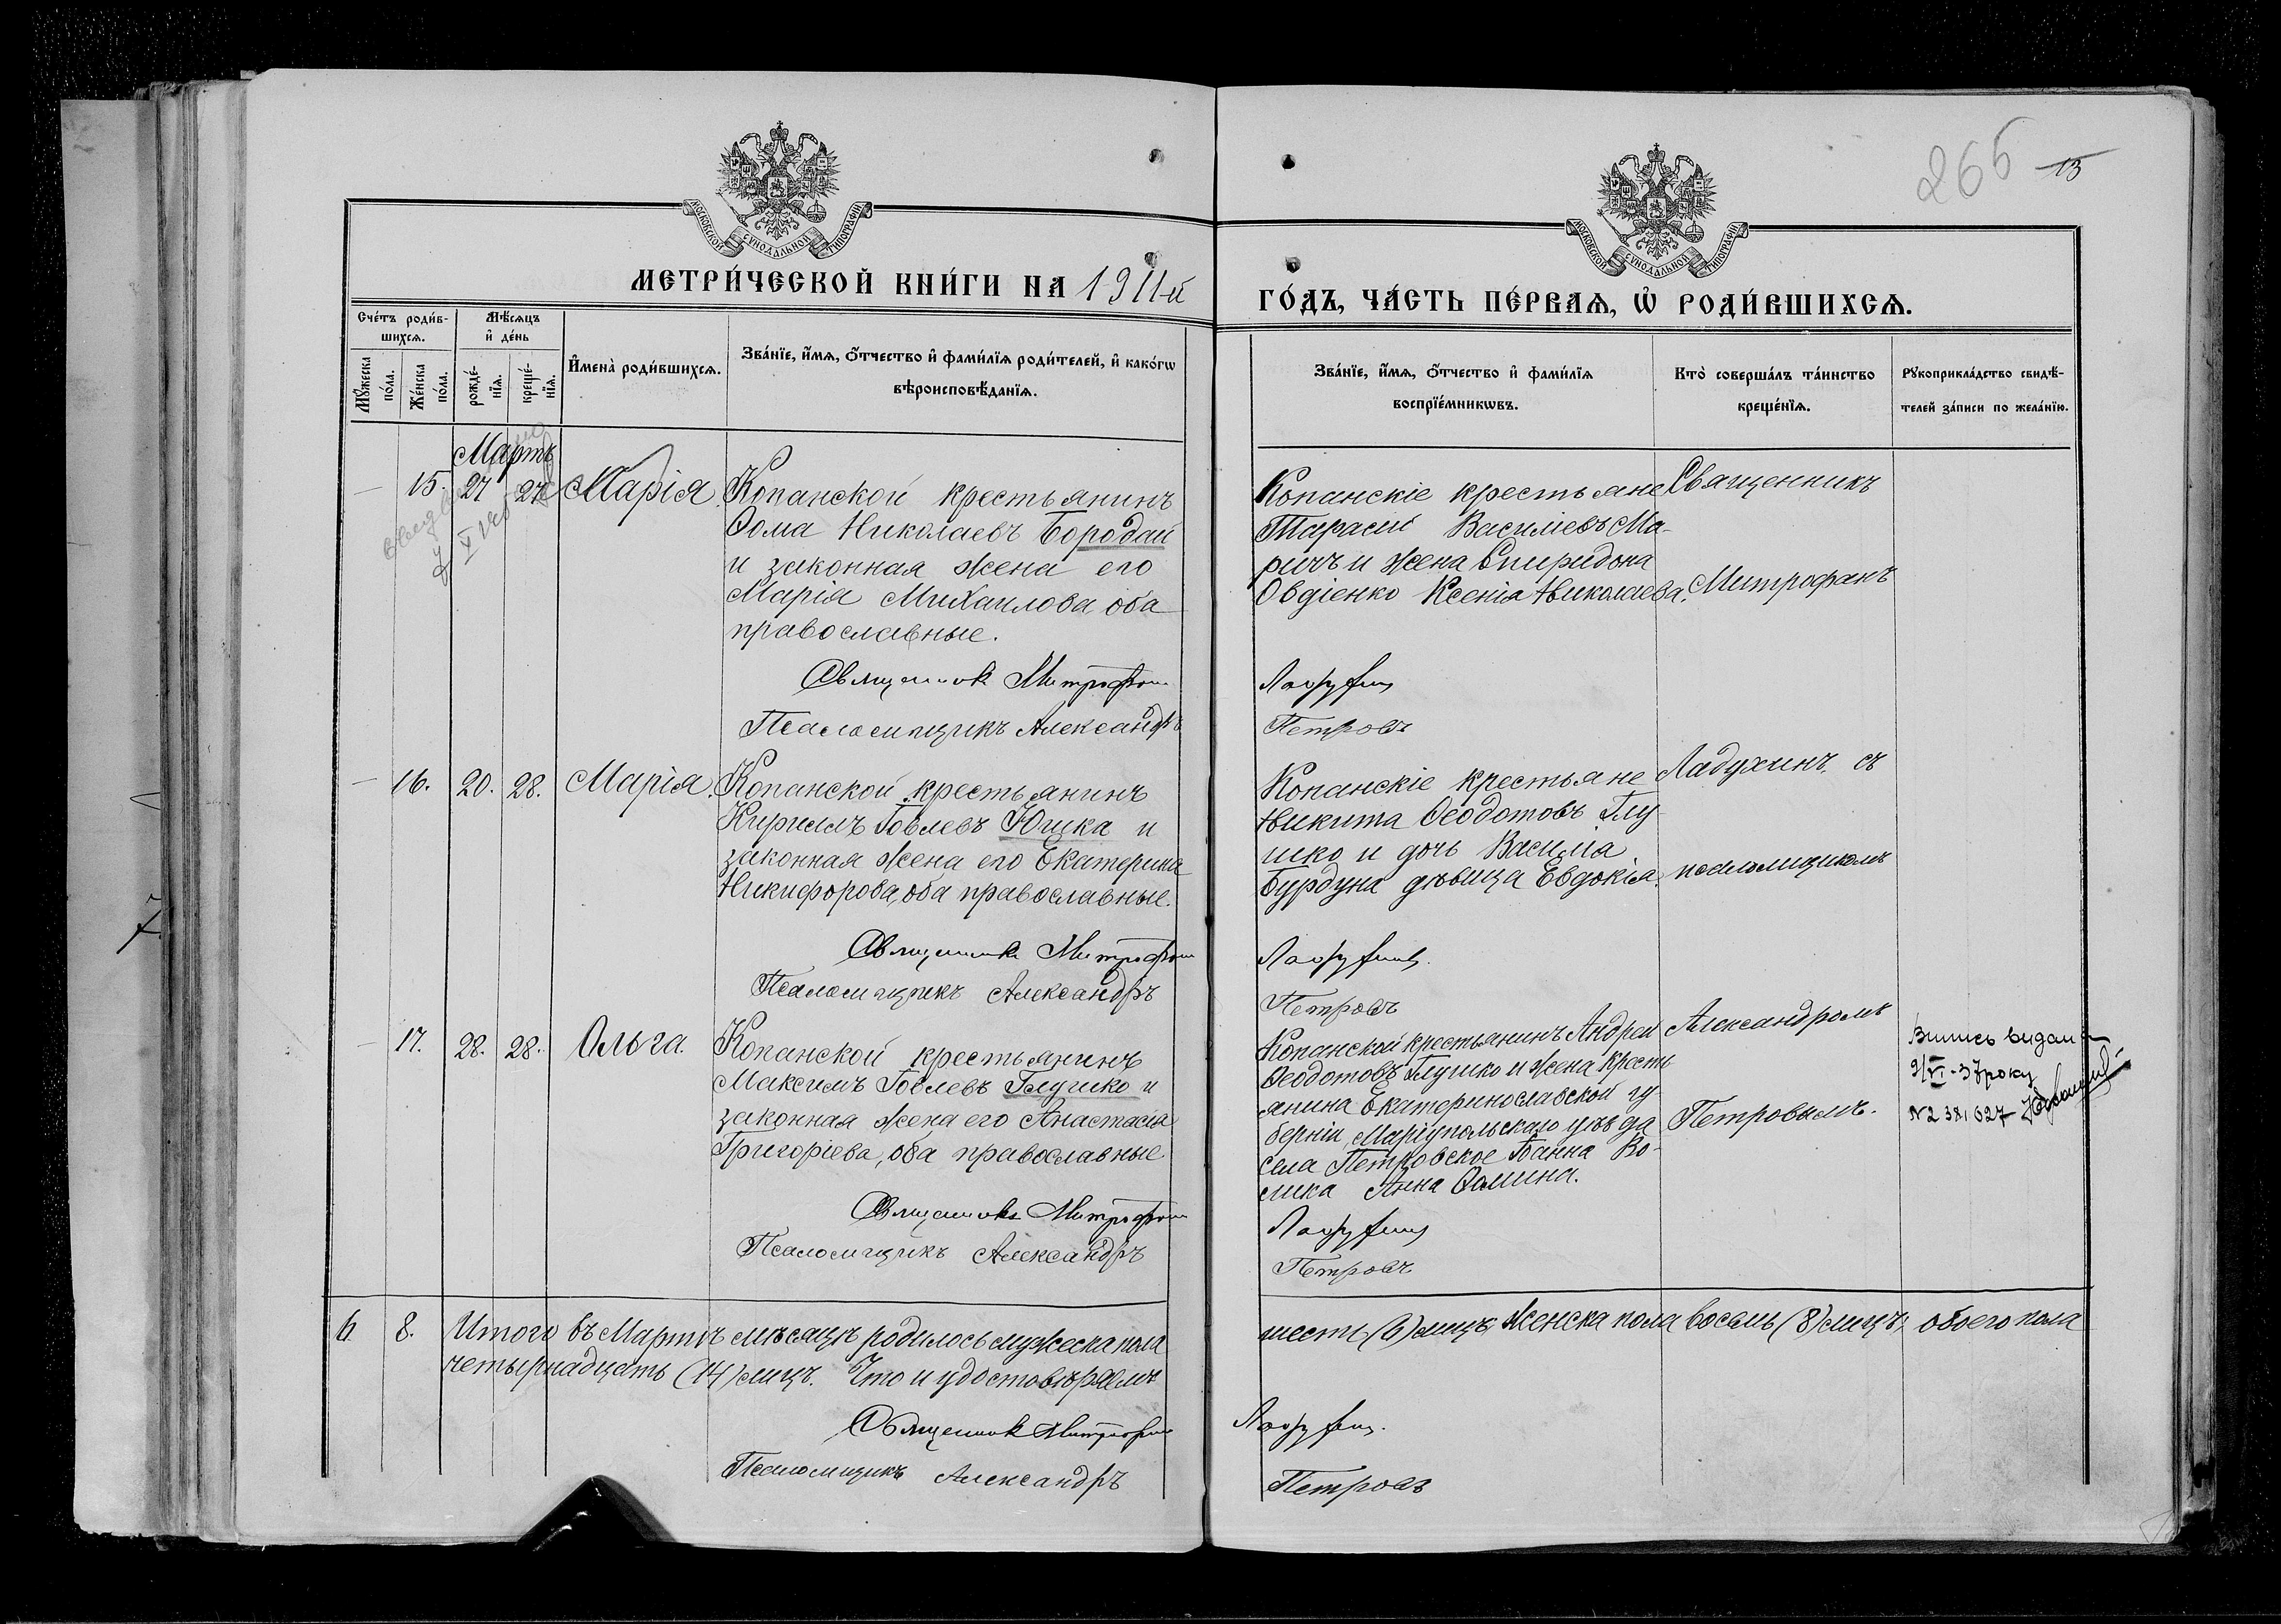 266 13
МОСКОВСКОЙ СѴНОДАЛЬНОЙ ТИПОГРАФІИ
МОСКОВСКОЙ СѴНОДАЛЬНОЙ ТИПОГРАФІИ
МЕТРИ́ЧЕСКОЙ КНИ́ГИ НА 1911-й
ГО́ДЪ, ЧА́СТЬ ПЕ́РВАѦ, Ѡ҆ РОДИ́ВШИХСѦ.
Сче́тъ роди́в-
шихсѧ.
Мꙋ́жеска по́ла.
Же́нска по́ла.
Мѣ́сѧцъ
и҆ де́нь
рожде́-
нїѧ.
креще́-
нїѧ.
И҆мена̀ роди́вшихсѧ.
Зва́нїе, и҆́мѧ, ѻ҆́тчество и҆ фами́лїѧ роди́телей, и҆ како́гѡ
вѣроисповѣ́данїѧ.
Зва́нїе, и҆́мѧ, ѻ҆́тчество и҆ фами́лїѧ
воспрїе́мникѡвъ.
Кто̀ соверша́лъ та́инство
креще́нїѧ.
Рꙋкоприкла́дство свидѣ́-
телей за́писи по жела́нїю.
Мартъ
15. 27 27 Марія
Копанской крестьянинъ
Ѳома Николаевъ Бородай
и законная жена его
Марія Михаилова оба
православные.
Священникъ Митрофанъ
Псаломщикъ Александръ
Копанскіе крестьяне
Тарасій Василіевъ Ма-
ричъ и жена Спиридона
Овдіенко Ксенія Николаева.
Петровъ
Священникъ
Митрофанъ
16. 20. 28. Марія.
Копанской крестьянинъ
Кириллъ Іовлевъ Юшка и
законная жена его Екатерина
Никифорова, оба православные.
Священникъ Митрофанъ
Псаломщикъ Александръ
Копанскіе крестьяне
Никита Ѳеодотовъ Глу-
шко и дочь Василія
Бурдуна дѣвица Евдокія.
Петровъ
Ладухинъ, съ
псаломщикомъ
17. 28. 28. Ольга.
Копанской крестьянинъ
Максимъ Іовлевъ Глушко и
законная жена его Анастасія
Григоріева, оба православные
Священникъ Митрофанъ
Псаломщикъ Александръ
Копанской крестьянинъ Андрей
Ѳеодотовъ Глушко и жена кресть-
янина Екатеринославской гу-
берніи, Маріупольскаго уѣзда
села Петровское
Анна Ѳомина.
Петровъ
Александромъ
Петровымъ.
Випись видана
9/VI-37 року
№ 2381627
6. 8. Итого въ Мартѣ мѣсяцѣ родилось мужеска пола
шесть (6) лицъ, женска пола восемь (8) лицъ, обоего пола
четырнадцать (14) лицъ. Что и удостовѣряемъ
Священникъ Митрофанъ
Псаломщикъ Александръ
Петровъ